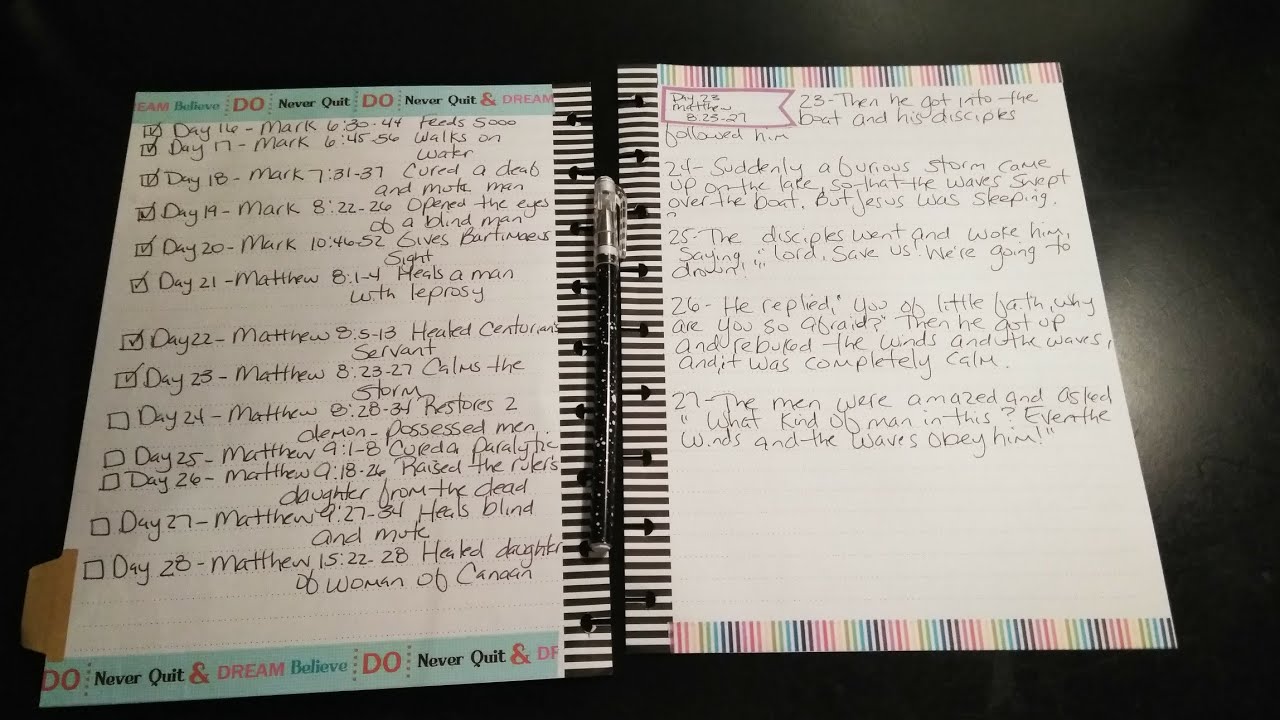 EAM Believe DO Never Quit DO Never Quit & DREAM
Day 16 - Mark 6:30-44 Feeds 5000
Day 17 - Mark 6:45-56 Walks on
Water
Day 18 - Mark 7:31-37 Cured a deaf
and mute man
Day 19 - Mark 8:22-26 Opened the eyes
of a blind man
Day 20 - Mark 10:46-52 Gives Bartimaeus
Sight
Day 21 - Matthew 8:1-4 Heals a man
with leprosy
Day 22 - Matthew 8:5-13 Healed Centurian's
Servant
Day 23 - Matthew 8:23-27 Calms the
storm
Day 24 - Matthew 8:28-34 Restores 2
demon-possessed men
Day 25 - Matthew 9:1-8 Cured a Paralytic
Day 26 - Matthew 9:18-26 Raised the ruler's
daughter from the dead
Day 27 - Matthew 9:27-34 Heals blind
and mute
Day 28 - Matthew 15:22-28 Healed daughter
of woman of Canaan
DO Never Quit & DREAM Believe DO Never Quit & DR
Day 23
Matthew
8:23-27
23-Then he got into the
boat and his disciples
followed him
24- Suddenly a furious storm came
up on the lake, so that the waves swept
over the boat. But Jesus was sleeping.
25-The disciples went and woke him,
saying, "Lord, Save us! We're going to
drown!"
26- He replied, "You of little faith, why
are you so afraid?" Then he got up
and rebuked the winds and the waves,
and it was completely calm.
27-The men were amazed and asked
"What kind of man in this? Even the
winds and the waves obey him!"